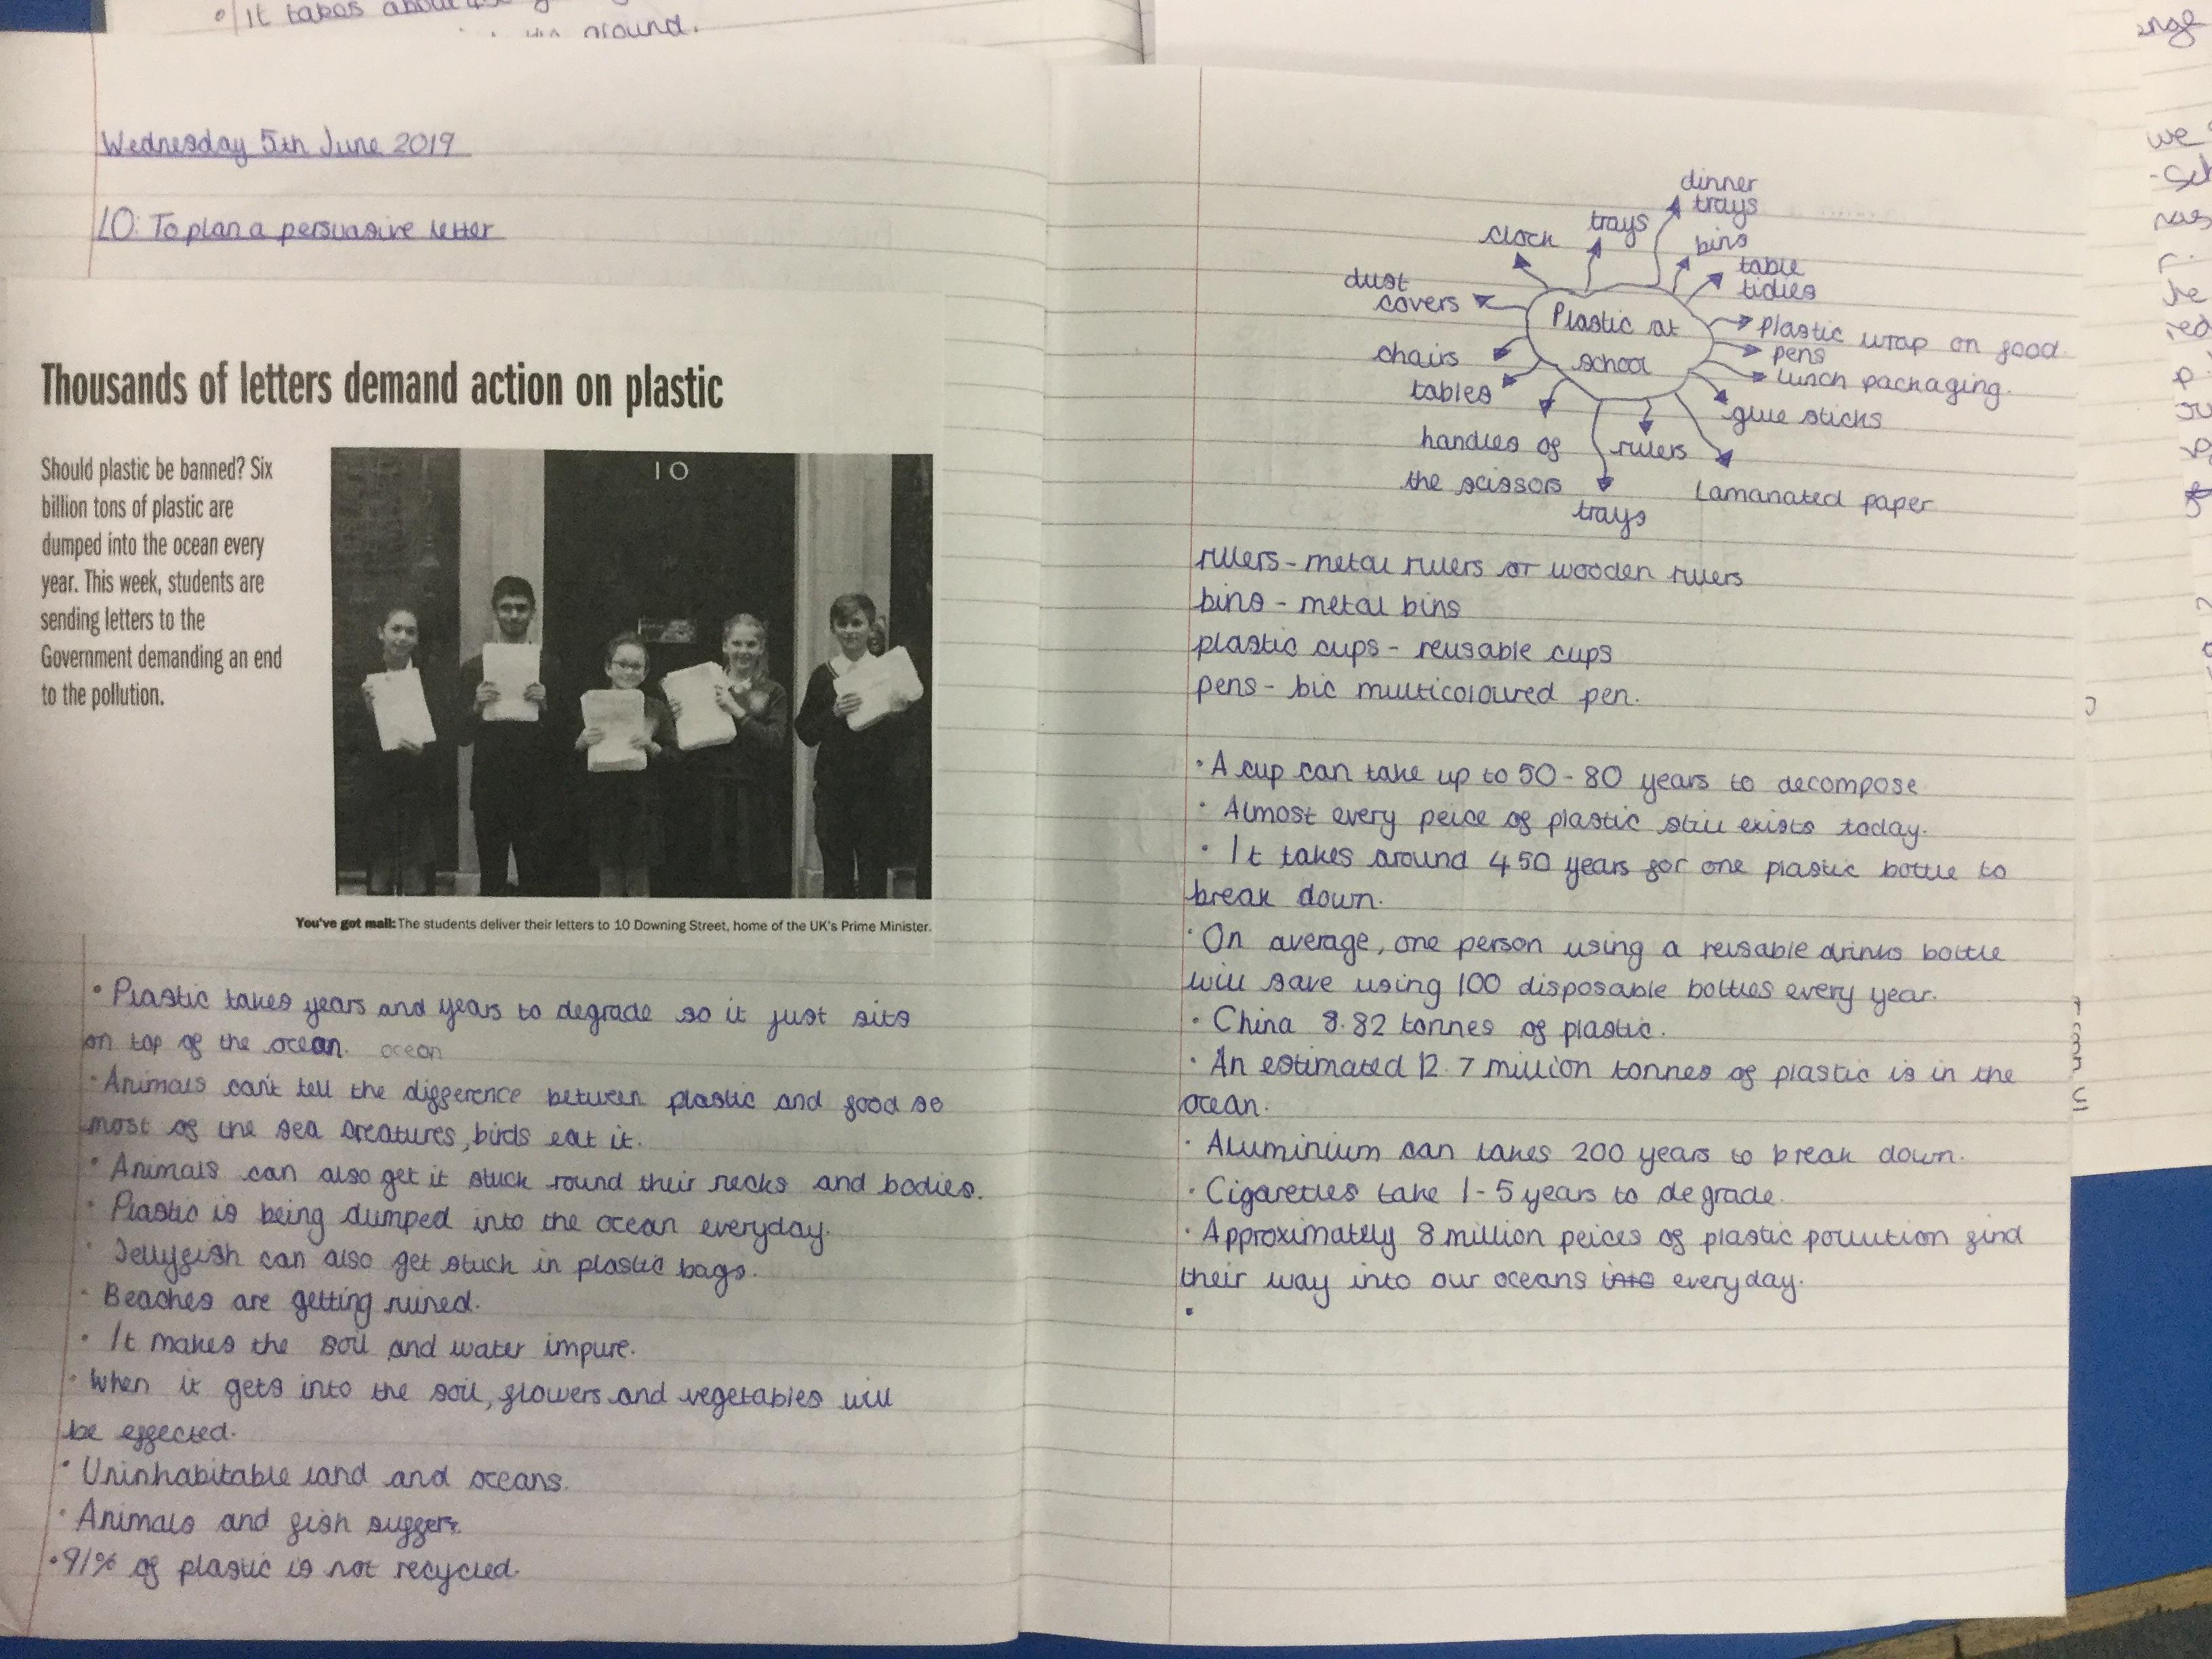 It takes about
around.
Wednesday 5th June 2019
LO: To plan a persuasive letter
Thousands of letters demand action on plastic
Should plastic be banned? Six
billion tons of plastic are
dumped into the ocean every
year. This week, students are
sending letters to the
Government demanding an end
to the pollution.
10
You've got mail: The students deliver their letters to 10 Downing Street, home of the UK's Prime Minister.
• Plastic takes years and years to degrade so it just sits
on top of the ocean. ocean
• Animals can't tell the difference between plastic and food so
most of the sea creatures, birds eat it.
• Animals can also get it stuck round their necks and bodies.
• Plastic is being dumped into the ocean everyday.
• Jellyfish can also get stuck in plastic bags.
• Beaches are getting ruined.
• It makes the soil and water impure.
• When it gets into the soil, flowers and vegetables will
be effected.
• Uninhabitable land and oceans.
• Animals and fish suffer.
• 91% of plastic is not recycled.
dinner
trays
trays
clock
bins
table
tidies
dust
covers
Plastic at
school
plastic wrap on food.
pens
lunch packaging.
chairs
tables
glue sticks
handles of
the scissors
rulers
trays
Lamanated paper
rulers - metal rulers or wooden rulers
bins - metal bins
plastic cups - reusable cups
pens - bic multicoloured pen.
• A cup can take up to 50-80 years to decompose
• Almost every peice of plastic still exists today.
• It takes around 450 years for one plastic bottle to
break down.
• On average, one person using a reusable drinks bottle
will save using 100 disposable bottles every year.
• China 8.82 tonnes of plastic.
• An estimated 12.7 million tonnes of plastic is in the
ocean.
• Aluminium can takes 200 years to break down.
• Cigarettes take 1-5 years to degrade.
• Approximately 8 million peices of plastic pollution find
their way into our oceans into everyday.
•
we